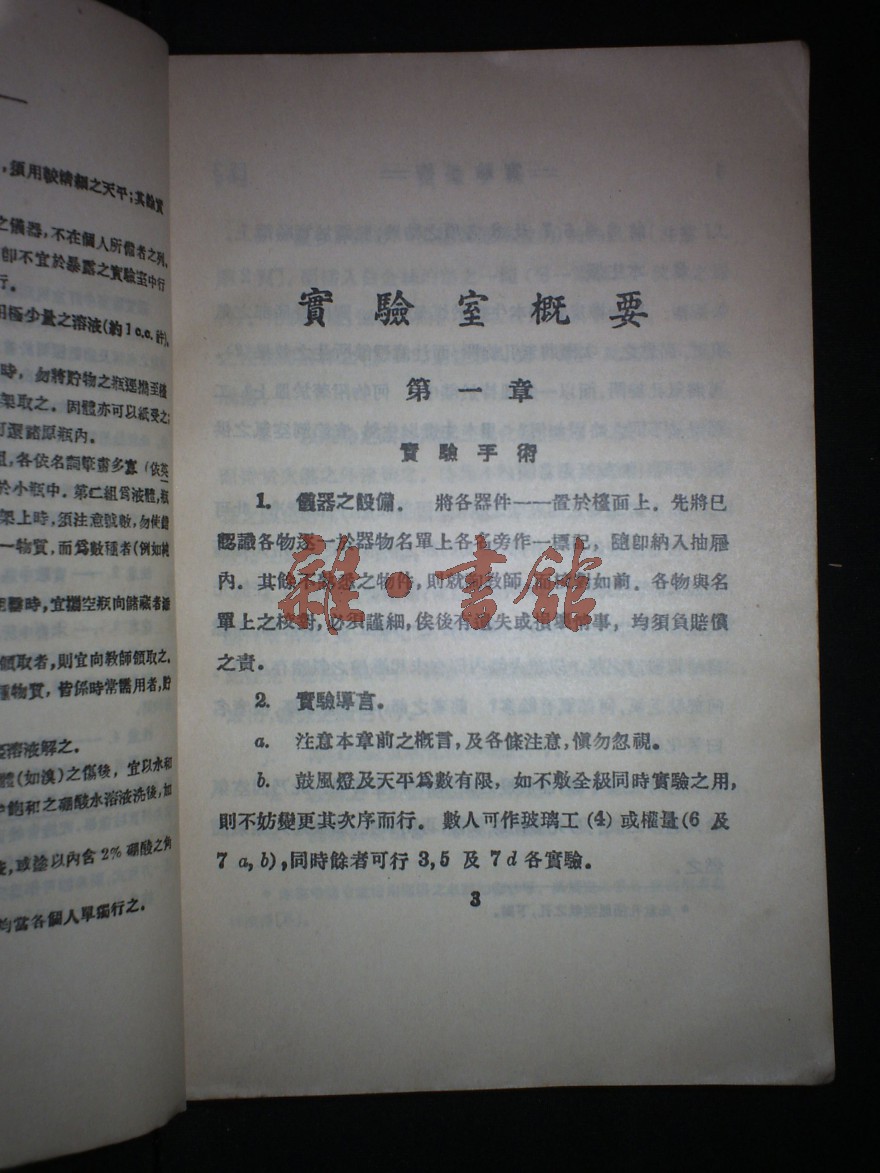 ，須用較精細之天平；其餘實
之儀器，不在個人所備者之列。
卽不宜於暴露之實驗室中行
行。
用極少量之溶液(約1c.c.許)。
時，勿將貯物之瓶逕攜至檯
架取之。固體亦可以紙受之；
可還諸原瓶內。
於小瓶中。第二組爲液體，瓶
架上時，須注意號數，勿使錯
一物質，而爲數種者(例如純
時，宜攜空瓶向儲藏者添
領取者，則宜向教師領取之。
種物質，皆係時常需用者，貯
溶液解之。
體(如溴)之傷後，宜以水和
飽和之硼酸水溶液洗後，如
，或塗以內含2%硼酸之
均當各個人單獨行之。
實驗室概要
第一章
實驗手術
1. 儀器之設備。 將各器件一一置於檯面上。先將已
認識各物逐一於器物名單上各名旁作一標記，隨卽納入抽屜
內。其餘不熟悉之物件，則就詢教師，而核對如前。各物與名
單上之校對，必須謹細，俟後有遺失或損壞情事，均須負賠償
之責。
2. 實驗導言。
a. 注意本章前之概言，及各條注意，愼勿忽視。
b. 鼓風燈及天平爲數有限，如不敷全級同時實驗之用，
則不妨變更其次序而行。數人可作玻璃工(4)或權量(6及
7 a, b)，同時餘者可行3,5及7d各實驗。
3
雜·書館